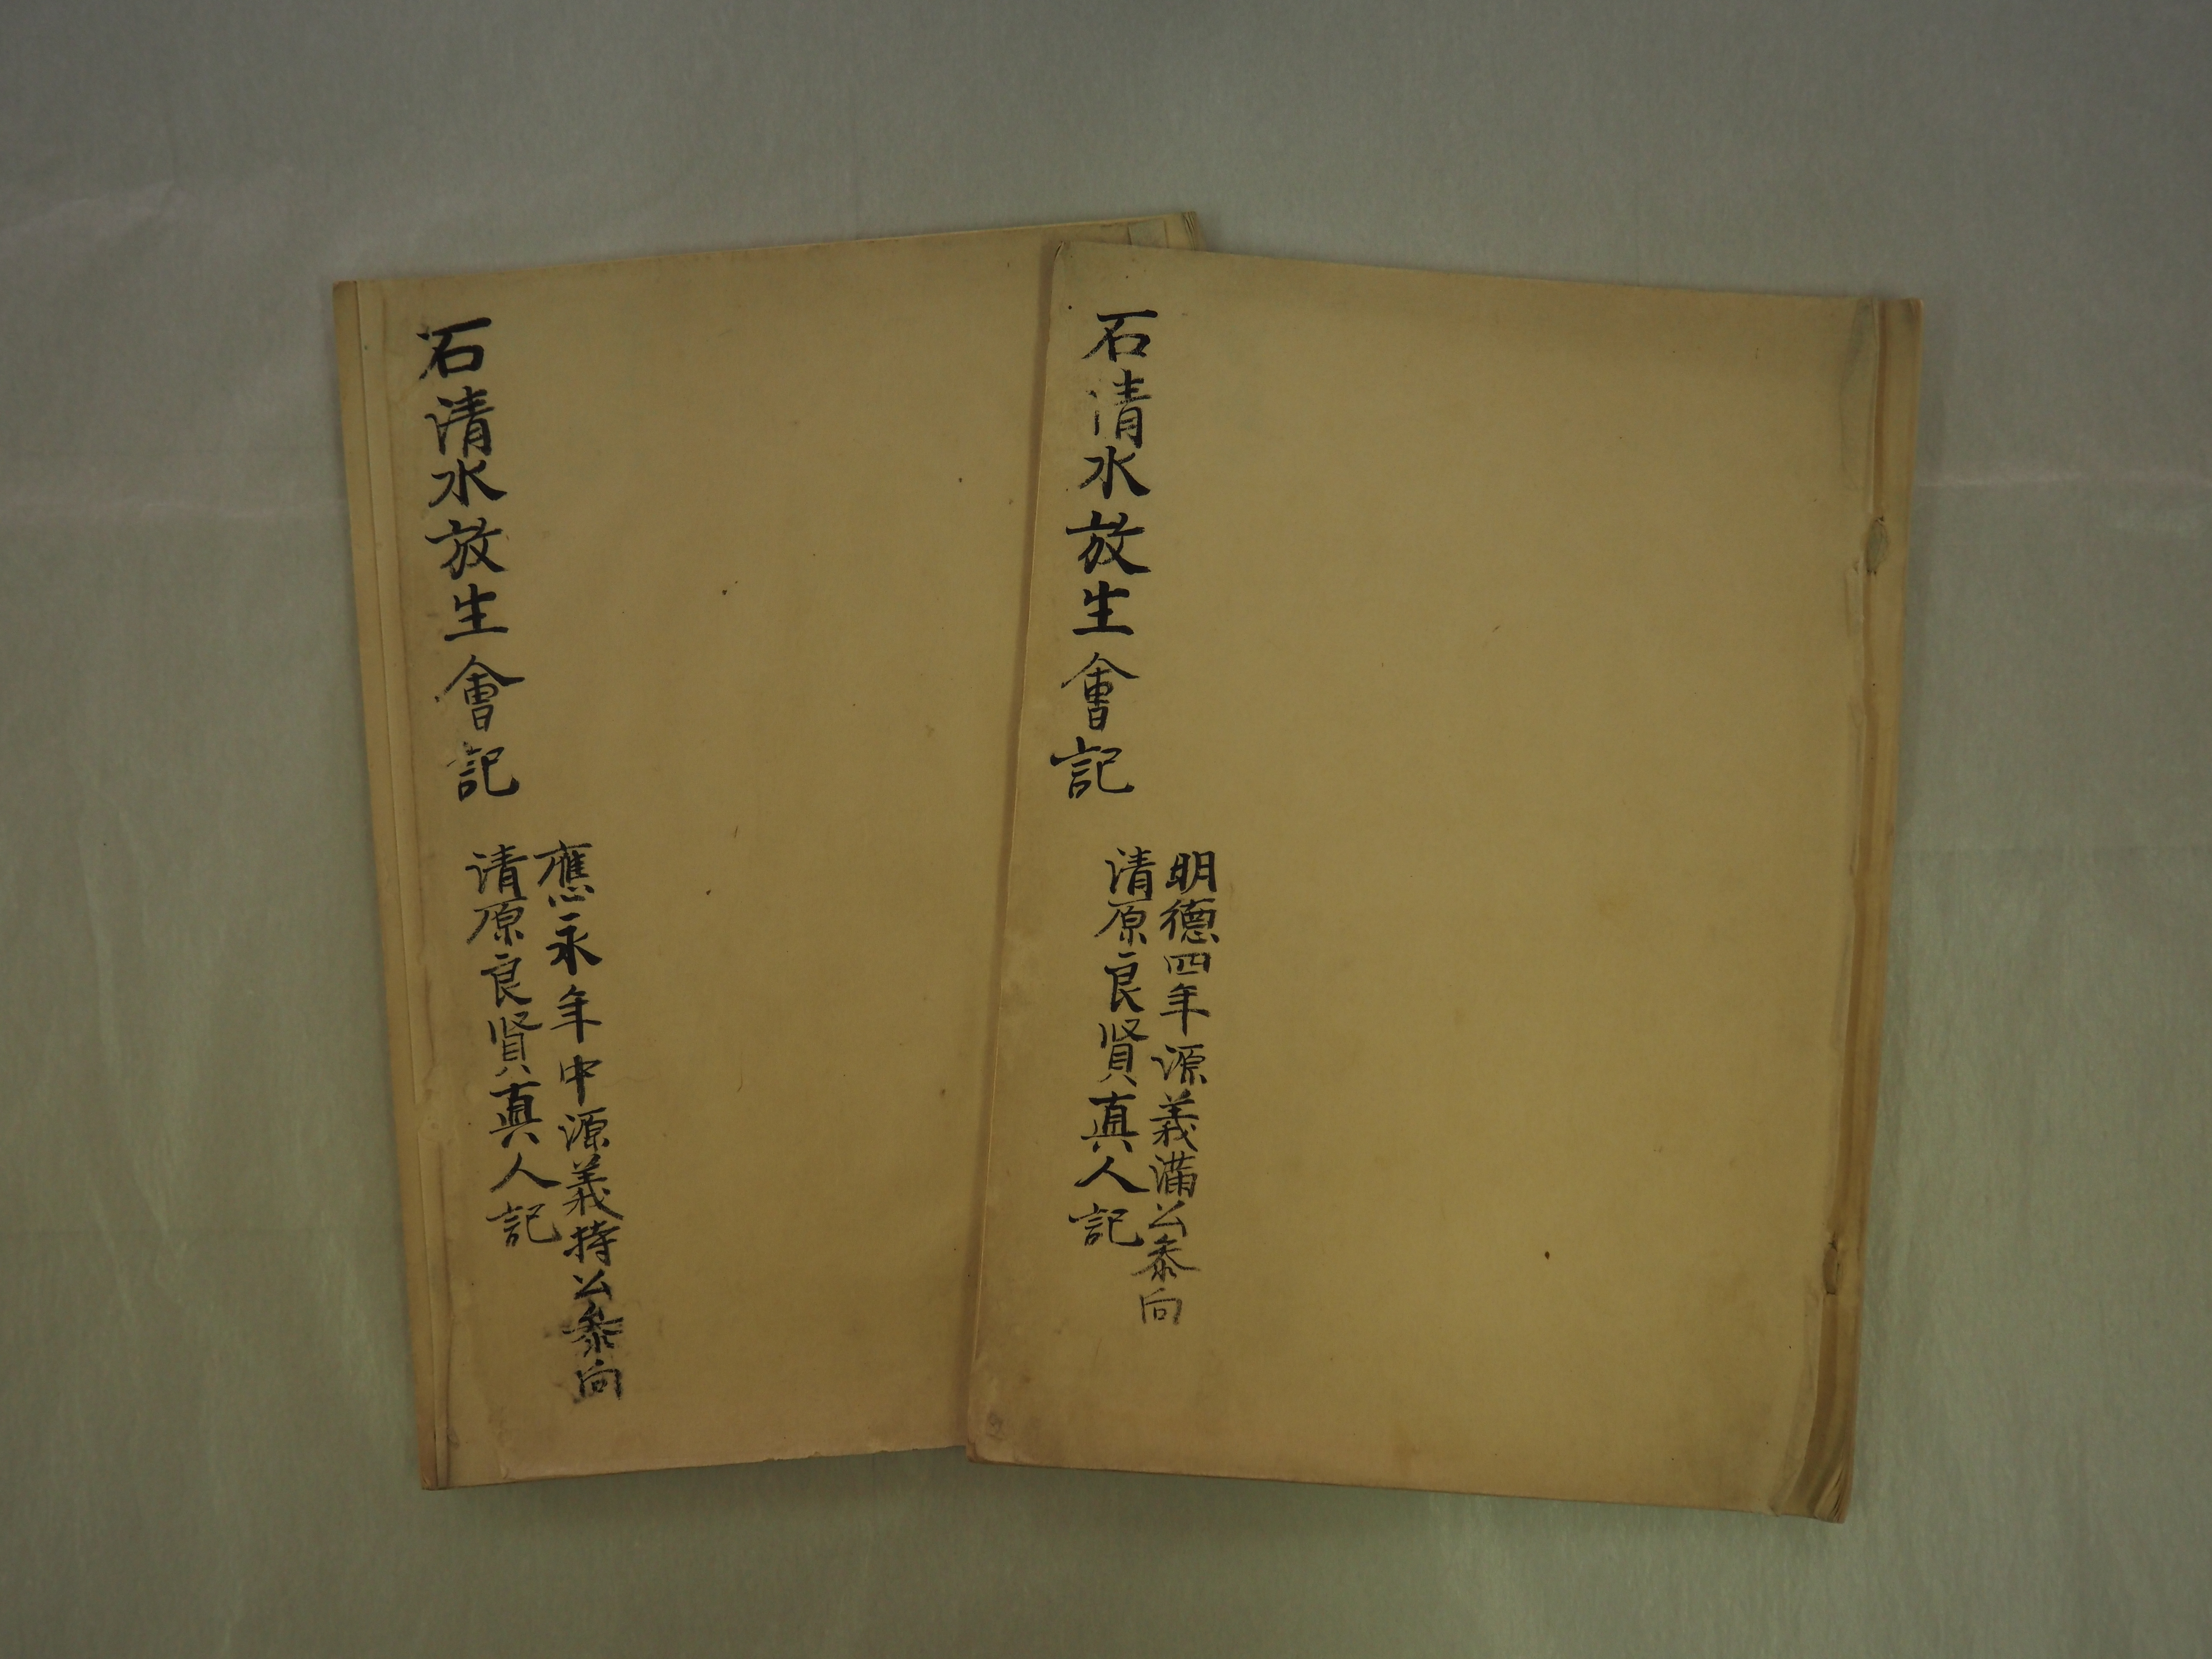 石清水放生會記
明德四年源義滿公参向
清原良賢真人記
石清水放生會記
應永年中源義持公参向
清原良賢真人記